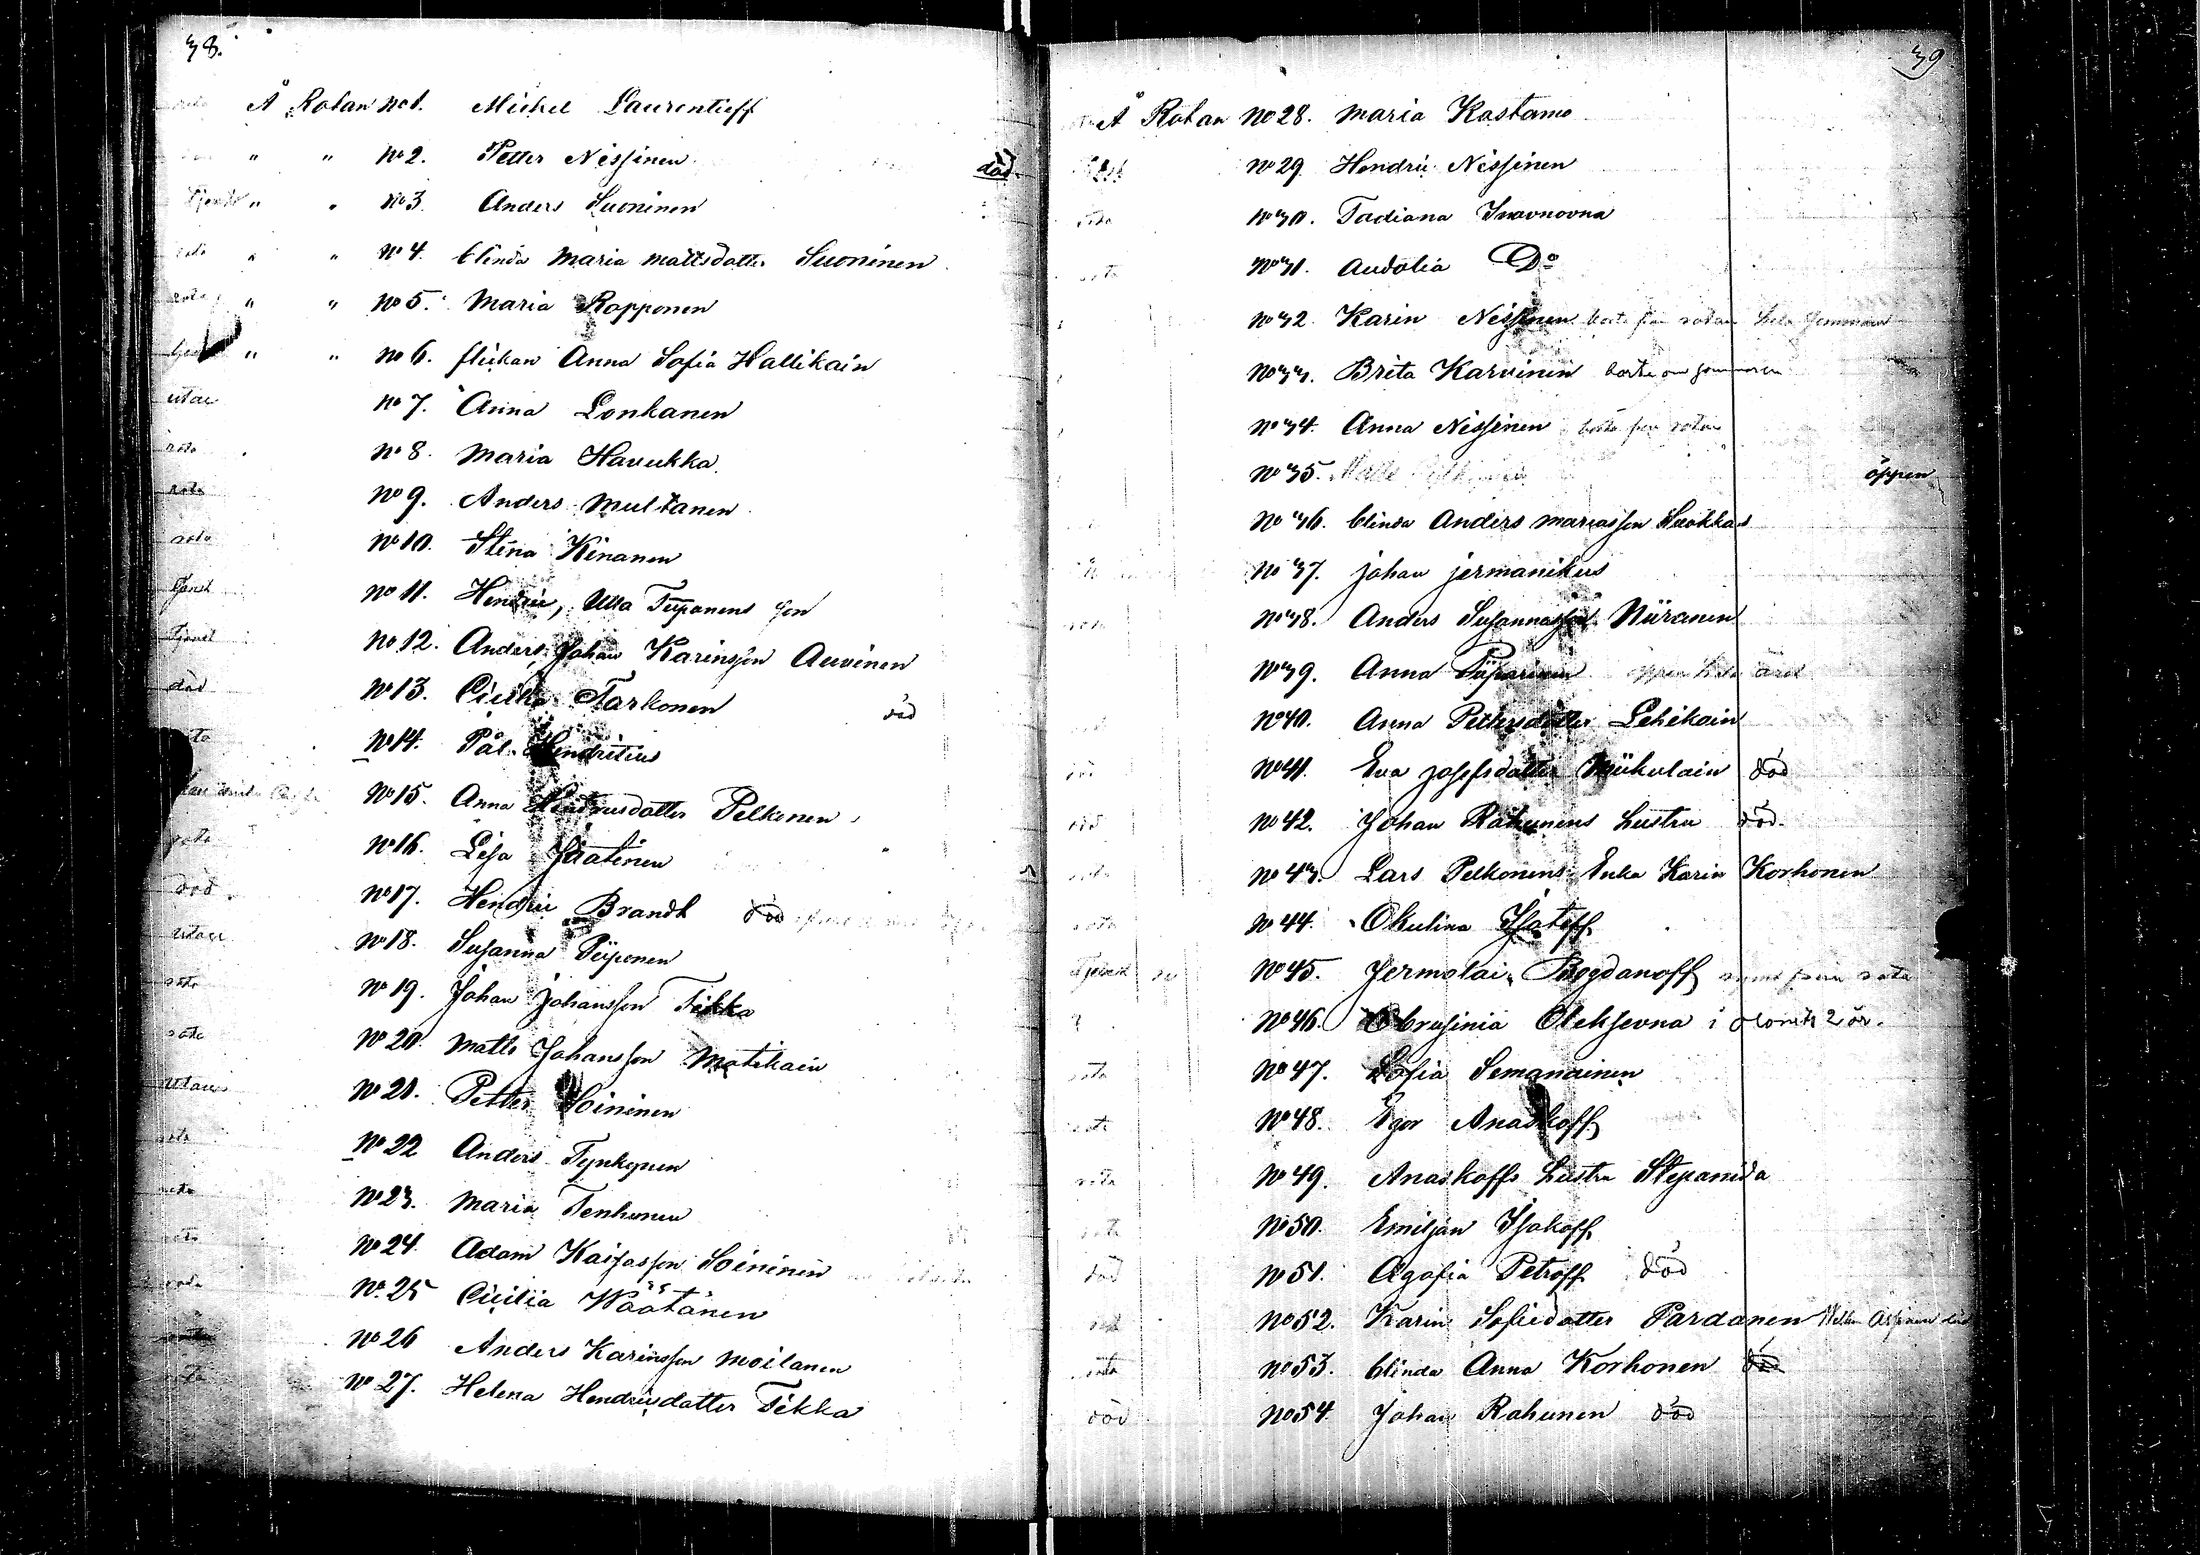 38.
Å Rotan No 1. Michel Laurentieff
" " No 2. Petter Nissinen död.
Tjenst " " No 3. Anders Suoninen
rota " " No 4. blinda Maria Mattsdotter Suoninen
rota " " No 5. Maria Rapponen
" " No 6. flickan Anna Sofia Hallikain
utac No 7. Anna Lonkanen
rota No 8. Maria Havukka
rota No 9. Anders Multanen
rota No 10. Stina Kinanen
Tjenst No 11. Hendric, Ulla Piiponens son
Tjenst No 12. Anders Johan Karinsson Auvinen
död No 13. Cicilia Tarkonen död
No 14. Pål Hendritius
No 15. Anna Hindricsdotter Pelkonen
rota No 16. Lisa Jäätinen
död No 17. Hendric Brandt död
utac No 18. Susanna Piiponen
rota No 19. Johan Johansson Tikka
rota No 20. Matts Johansson Matikain
utac No 21. Petter Soininen
rota No 22 Anders Tynkynen
rota No 23. Maria Tenhunen
rota No 24. Adam Kaisasson Soininen
rota No. 25 Cicilia Wäätänen
rota No 26 Anders Karinsson Moilanen
rota No 27. Helena Hendricsdotter Tikka
39
Å Rotan No 28. Maria Kastamo
No 29 Hendric Nissinen
rota No 30. Tadiana Iwavnovna
rota No 31. Audotia Do
No 32. Karin Nissinen borta från rotan hela sommaren
No 33. Brita Karvinin borta om sommaren
No 34. Anna Nissinen borta från rotan
No 35. Matts öppen
No 36. blinda Anders Mariasson Suokkas
No 37. Johan Jermanikus
rota No 38. Anders Susannasson Niiranen
No 39. Anna Piiparinen öppen hela året
No 40. Anna Pettersdotter Lehikoin
död No 41. Eva Josefsdotter Miikulain död
död No 42. Johan Rahunens hustru död.
rota No 43. Lars Pelkonens Enka Karin Korhonen
rota No 44. Okulina Isateff
Tjenst No 45. Jermolai Bogdanoff rymt från rota
No 46. Obrusinia Oleksevna i Olonets 2 år.
rota No 47. Sofia Semanainen
rota No 48. Egor Anaskoff
rota No 49. Anaskoffs hustru Stepanida
rota No 50. Emiljan Isakoff
död No 51. Agafia Petroff död
No 52. Karin Sofiedotter Pardanen
rota No 53. blinda Anna Korhonen död
död No 54. Johan Rahunen död